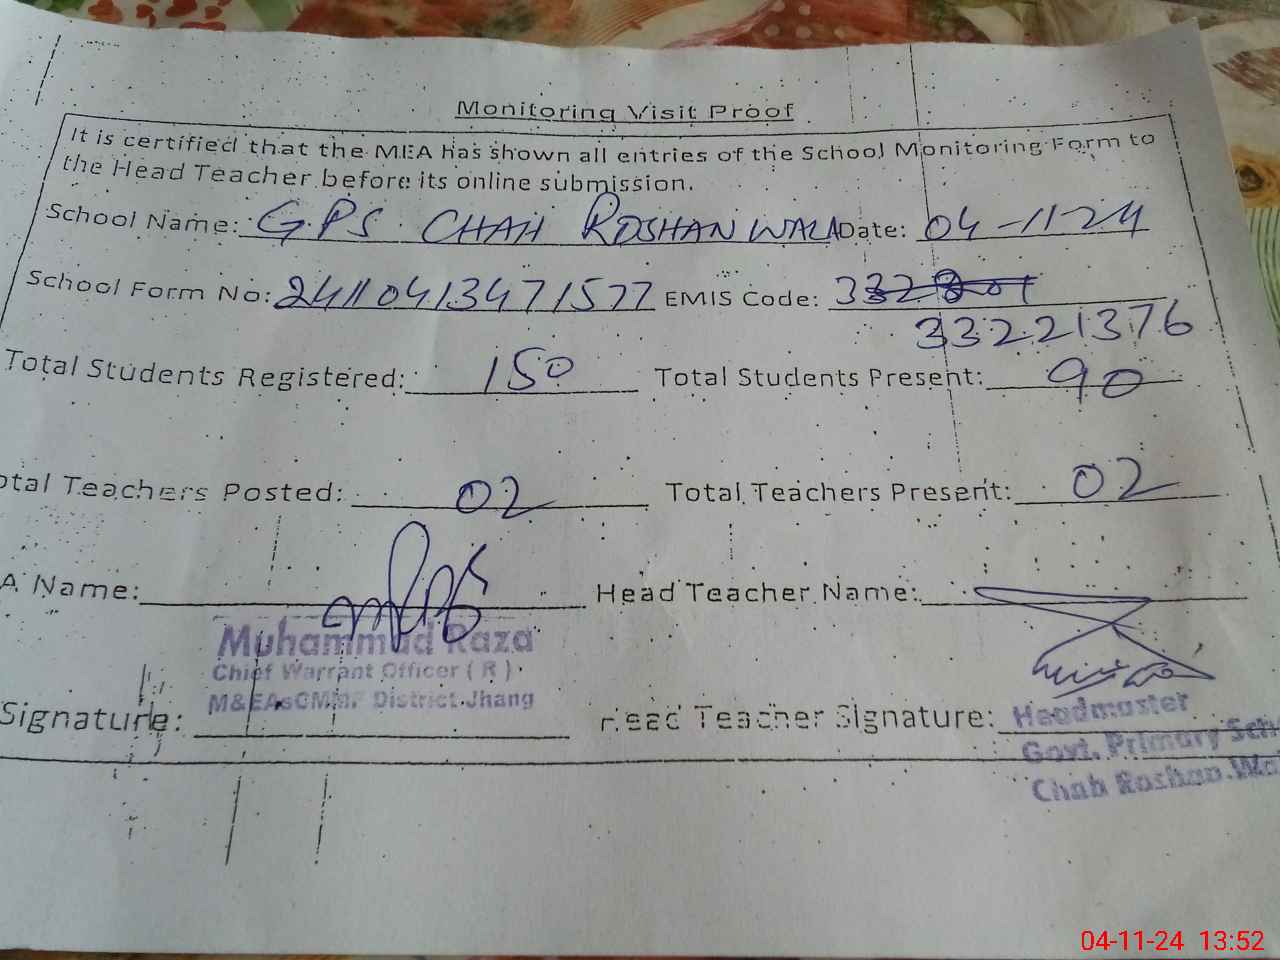 Monitoring Visit Proof
It is certified that the MEA has shown all entries of the School Monitoring Form to
the Head Teacher before its online submission.
School Name: GPS CHAH ROSHAN WALA Date: 04-11-24
School Form No: 2411041347 1577 EMIS Code:
33221376
Total Students Registered: 150 Total Students Present: 90
otal Teachers Posted: 02 Total Teachers Present: 02
A Name: Head Teacher Name:
Muhammad Raza
Chief Warrant Officer ( R )
M&EAsCMMF District Jhang
Signature: Head Teacher Signature: Headmaster
Govt. Primary Sch
Chah Roshan Wa
04-11-24 13:52